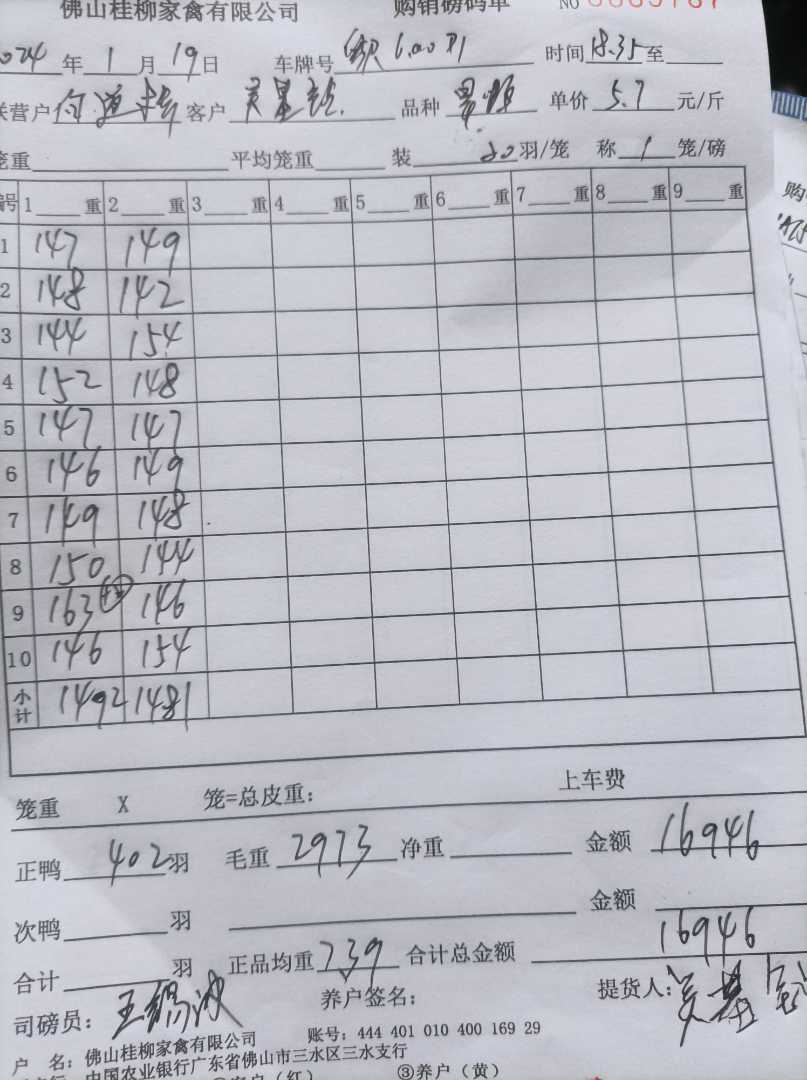 佛山桂柳家禽有限公司 购销磅码单 No
2024 年 1 月 19 日 车牌号 时间 18.35 至
联营户 客户 品种 单价 5.7 元/斤
笼重 平均笼重 装 20 羽/笼 称 1 笼/磅
编号 1 重 2 重 3 重 4 重 5 重 6 重 7 重 8 重 9 重
1 147 149
2 148 142
3 144 154
4 152 148
5 147 147
6 146 149
7 149 148
8 150 144
9 163 146
10 146 154
小计 1492 1481
笼重 X 笼=总皮重: 上车费
正鸭 402 羽 毛重 2973 净重 金额 16946
次鸭 羽 金额
合计 羽 正品均重 7.39 合计总金额 16946
司磅员: 王锡波 养户签名: 提货人:
户 名: 佛山桂柳家禽有限公司 账号: 444 401 010 400 169 29
中国农业银行广东省佛山市三水区三水支行
②客户(红) ③养户(黄)